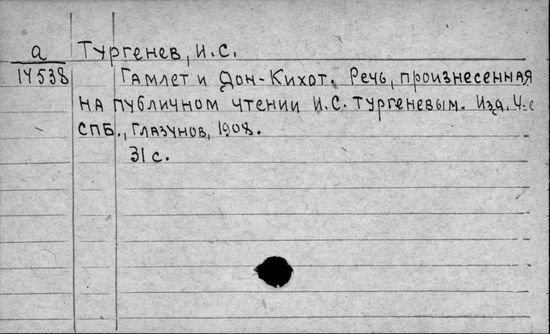 а Тургенев, И.С.
14538 Гамлет и Дон-Кихот. Речь, произнесенная
на публичном чтении И.С. Тургеневым. Изд. 4-е
СПБ., Глазунов, 1908.
31 с.